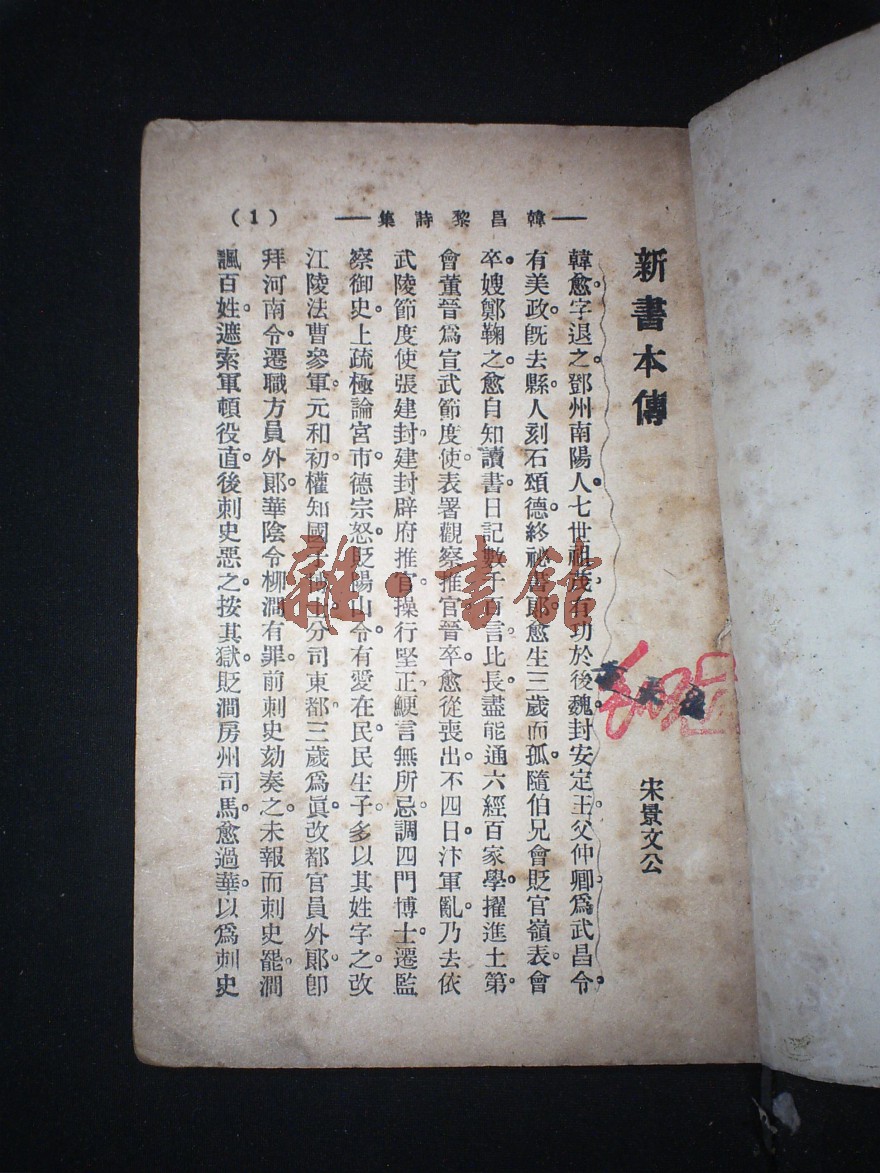 （1） —韓昌黎詩集—
新書本傳
宋景文公
韓愈。字退之。鄧州南陽人。七世祖茂。有功於後魏。封安定王。父仲卿。爲武昌令。
有美政。旣去。縣人刻石頌德。終祕書郎。愈生三歲而孤。隨伯兄會貶官嶺表。會
卒。嫂鄭鞠之。愈自知讀書。日記數千百言。比長。盡能通六經百家學。擢進士第。
會董晉爲宣武節度使。表署觀察推官。晉卒。愈從喪出。不四日。汴軍亂。乃去依
武陵節度使張建封。建封辟府推官。操行堅正。鯁言無所忌。調四門博士。遷監
察御史。上疏極論宮市。德宗怒。貶陽山令。有愛在民。民生子多以其姓字之。改
江陵法曹參軍。元和初。權知國子博士。分司東都。三歲爲眞。改都官員外郎。卽
拜河南令。遷職方員外郎。華陰令柳澗有罪。前刺史劾奏之。未報而刺史罷。澗
諷百姓遮索軍頓役直。後刺史惡之。按其獄。貶澗房州司馬。愈過華。以爲刺史
雜·書館